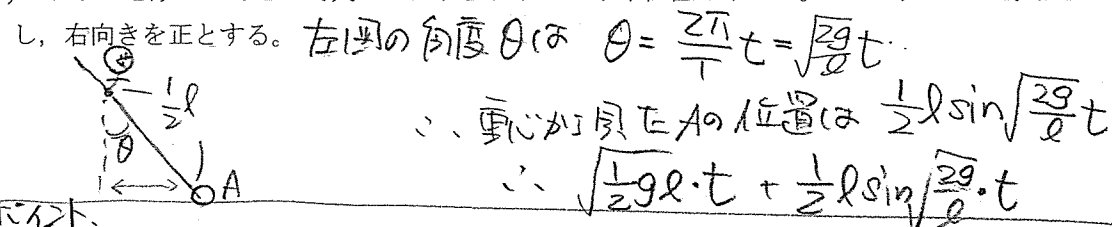 し,右向きを正とする。 左図の角度θは θ = 2π/T t = √(2g/ℓ) t
重 1/2 ℓ
θ
A
∴ 重心から見たAの位置は 1/2 ℓ sin√(2g/ℓ) t
∴ √(1/2 gℓ)・t + 1/2 ℓ sin√(2g/ℓ)・t
ポイント、